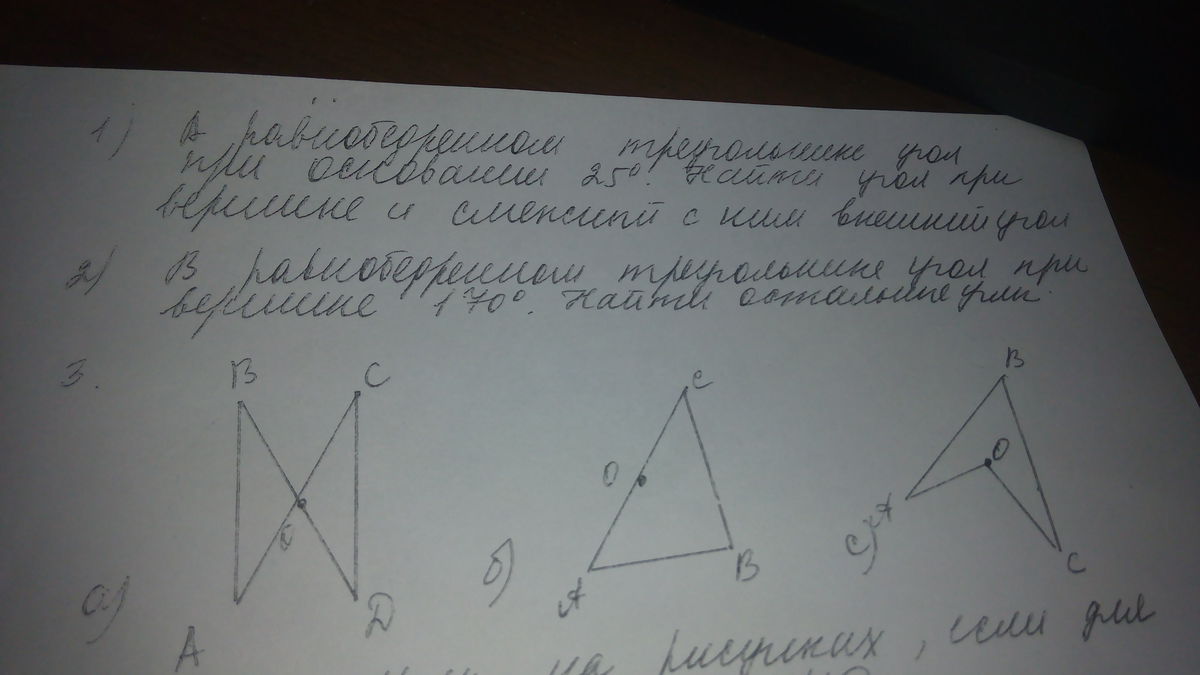 1) В равнобедренном треугольнике угол
при основании 25°. Найти угол при
вершине и смежный с ним внешний угол
2) В равнобедренном треугольнике угол при
вершине 170°. Найти остальные углы.
3.
B C
E
A D
а)
C
O
A B
б)
B
O
A
C
с)
на рисунках, если для